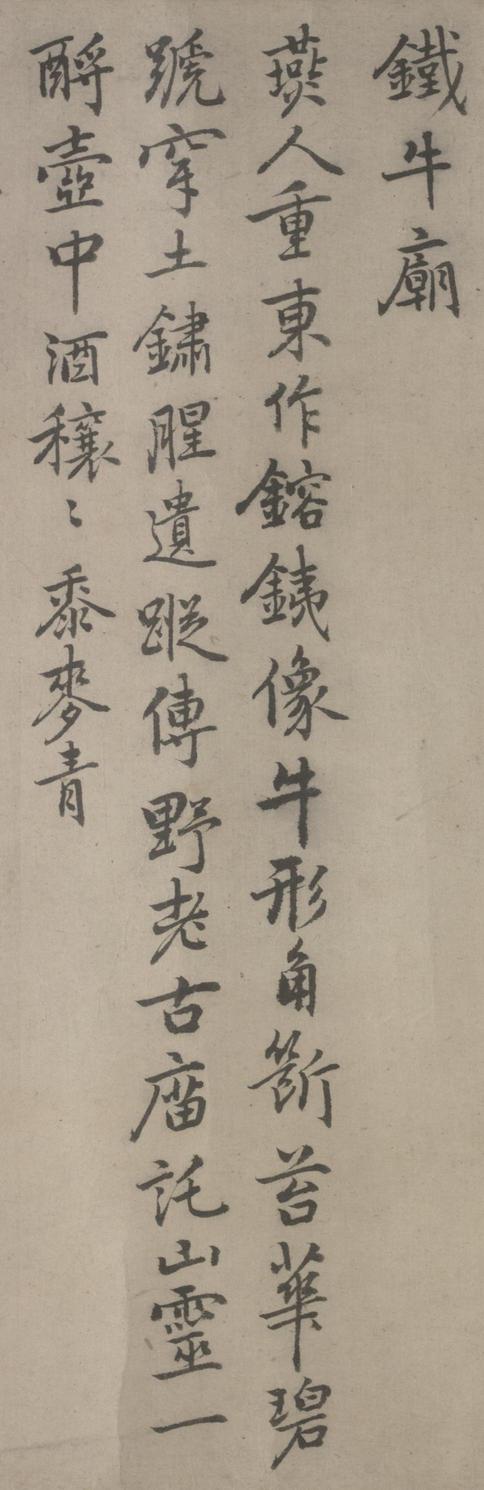 鐵牛廟
燕人重東作鎔銕像牛形角斷苔華碧
蹏穿土鏽腥遺蹤傳野老古庿託山靈一
酹壺中酒穰〻黍麥青